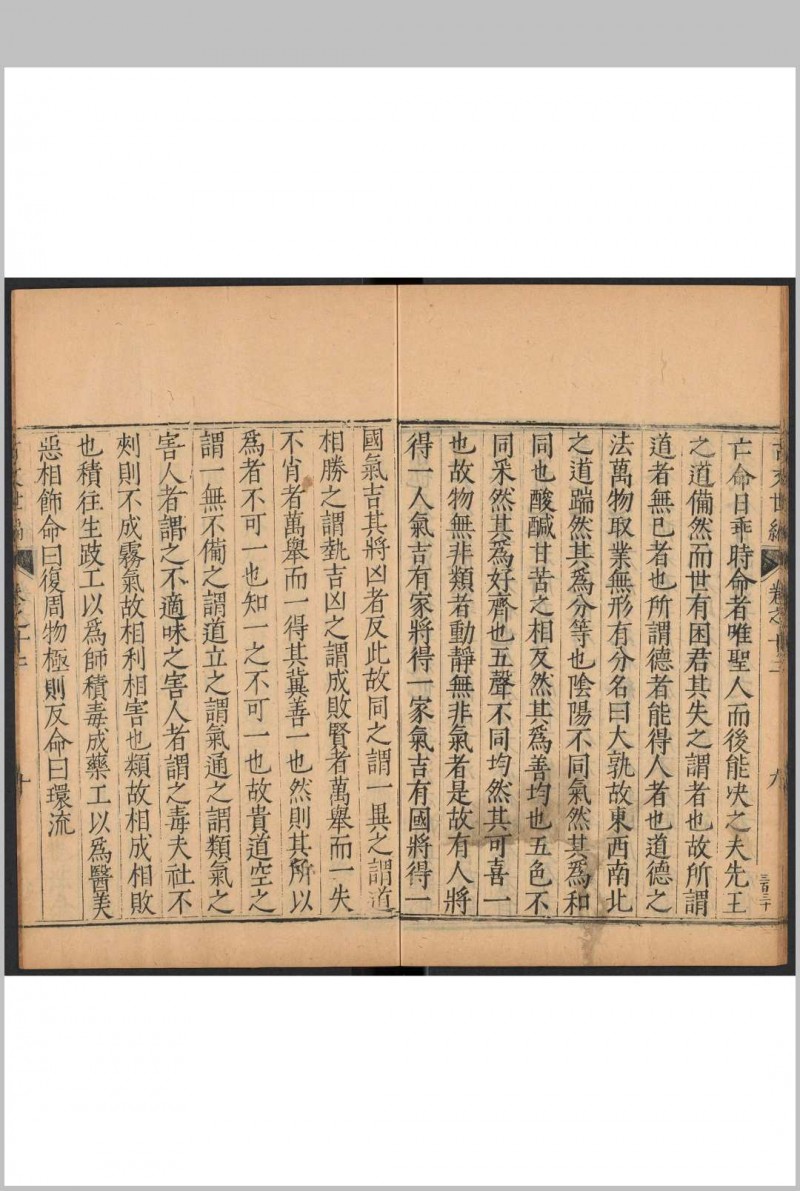 古文世編 卷之十二 九 三百三十
亡命日乖時命者唯聖人而後能决之夫先王
之道備然而世有困君其失之謂者也故所謂
道者無已者也所謂德者能得人者也道德之
法萬物取業無形有分名曰大孰故東西南北
之道踹然其爲分等也隂陽不同氣然其爲和
同也酸醎甘苦之相反然其爲善均也五色不
同采然其爲好齊也五聲不同均然其可喜一
也故物無非類者動靜無非氣者是故有人將
得一人氣吉有家將得一家氣吉有國將得一
國氣吉其將凶者反此故同之謂一異之謂道
相勝之謂埶吉凶之謂成敗賢者萬舉而一失
不肖者萬舉而一得其冀善一也然則其所以
爲者不可一也知一之不可一也故貴道空之
謂一無不僃之謂道立之謂氣通之謂類氣之
害人者謂之不適味之害人者謂之毒夫社不
㓨則不成霧氣故相利相害也類故相成相敗
也積往生跂工以爲師積毒成藥工以爲醫美
惡相飾命曰復周物極則反命曰環流
古文世編 卷之十二 十